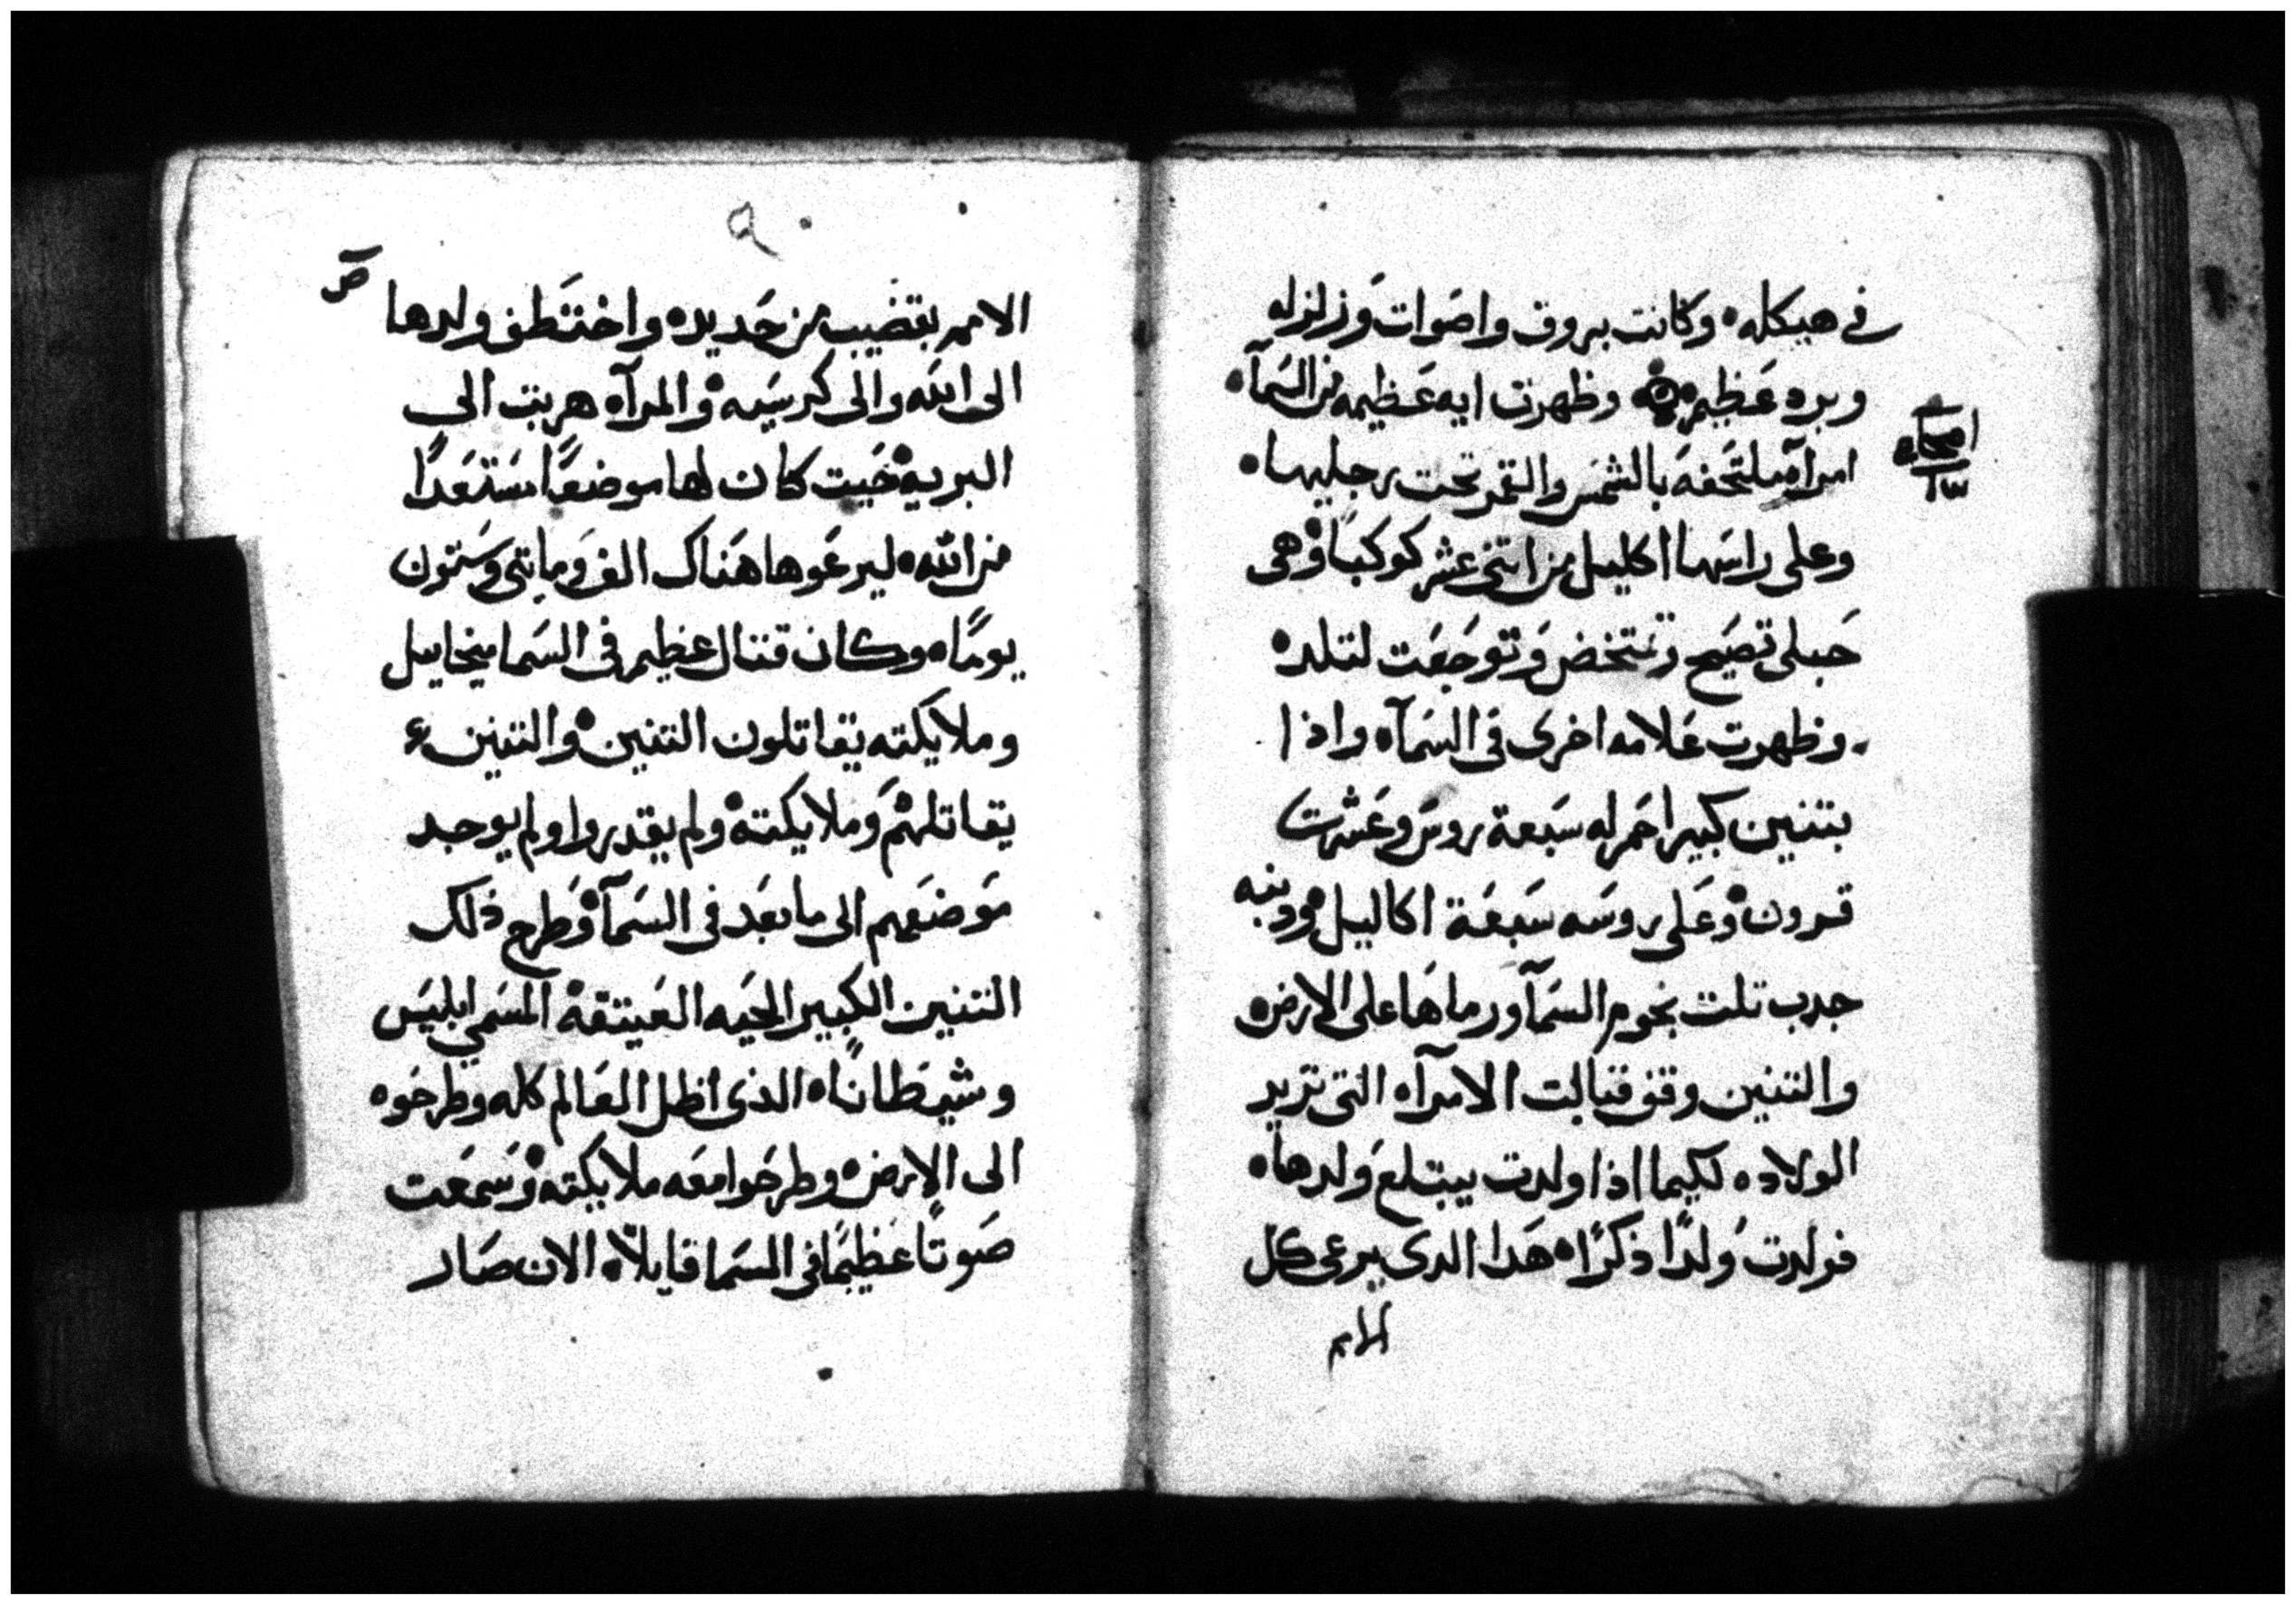 في هيكله وكانت بروق واصوات وزلزله
وبرد عظيم وظهرت ايه عظيمه من السمآ
اصحاح
١٢
امرآه ملتحفه بالشمس والقمر تحت رجليها
وعلى راسها اكليل من اتنى عشر كوكبًا وهى
حبلى تصيح وتتمخض وتوجعت لتلد
وظهرت علامه اخرى في السمآ واذا
بتنين كبير احمر له سبعة روس وعشرت
قرون وعلى روسه سبعة اكاليل ودنبه
جدب تلت نجوم السمآ ورماها على الارض
والتنين وقف قبالت الامرآه التى تريد
الولاده لكيما اذا ولدت يبتلع ولدها
فولدت ولدًا ذكرًا هدا الدى يرعى كل
الامم
٩٠
ص
الامم بقضيب من حديد واختطف ولدها
الى الله والى كرسيه والمرآه هربت الى
البريه حيت كان لها موضعًا مستعدًا
من الله ليرعوها هناك الف ومايتى وستون
يومًا وكان قتال عظيم في السما ميخاييل
وملايكته يقاتلون التنين والتنين
يقاتلهم وملايكته ولم يقدروا ولم يوجد
موضعهم الى ما بعد في السمآ وطرح ذلك
التنين الكبير الحيه العتيقة المسمي ابليس
وشيطانًا الذى اظل العالم كله وطرحوه
الى الارض وطرحوا معه ملايكته وسمعت
صوتًا عظيمًا في السما قايلاً الان صار